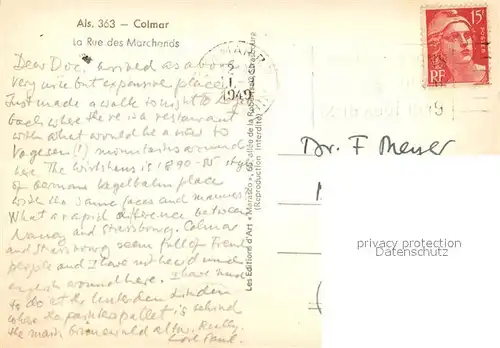 Als. 363 — Colmar
La Rue des Marchands
Dear Doc, arrived as above
very nice but expensive place.
Just made a walk tonight to
back where there is a restaurant
with what would be a view to
Vogesen (!) mountains around
here. The Wirtshaus is 1890-95 style
of German Kegelbahn place
with the same faces and manners.
What a rapid difference between
Nancy and Strassbourg. Colmar
and Strassbourg seem full of French
people and I have not heard much
english around here. I have much
to do at the Unterden Linden
where the painters pallet is behind
the main Grünewald altar. Really,
Carl Paul.
Les Editions d'Art « Marasco »
(Reproduction interdite)
2
1949
15F
POSTES
RF
Dr. F Meyer
privacy protection
Datenschutz